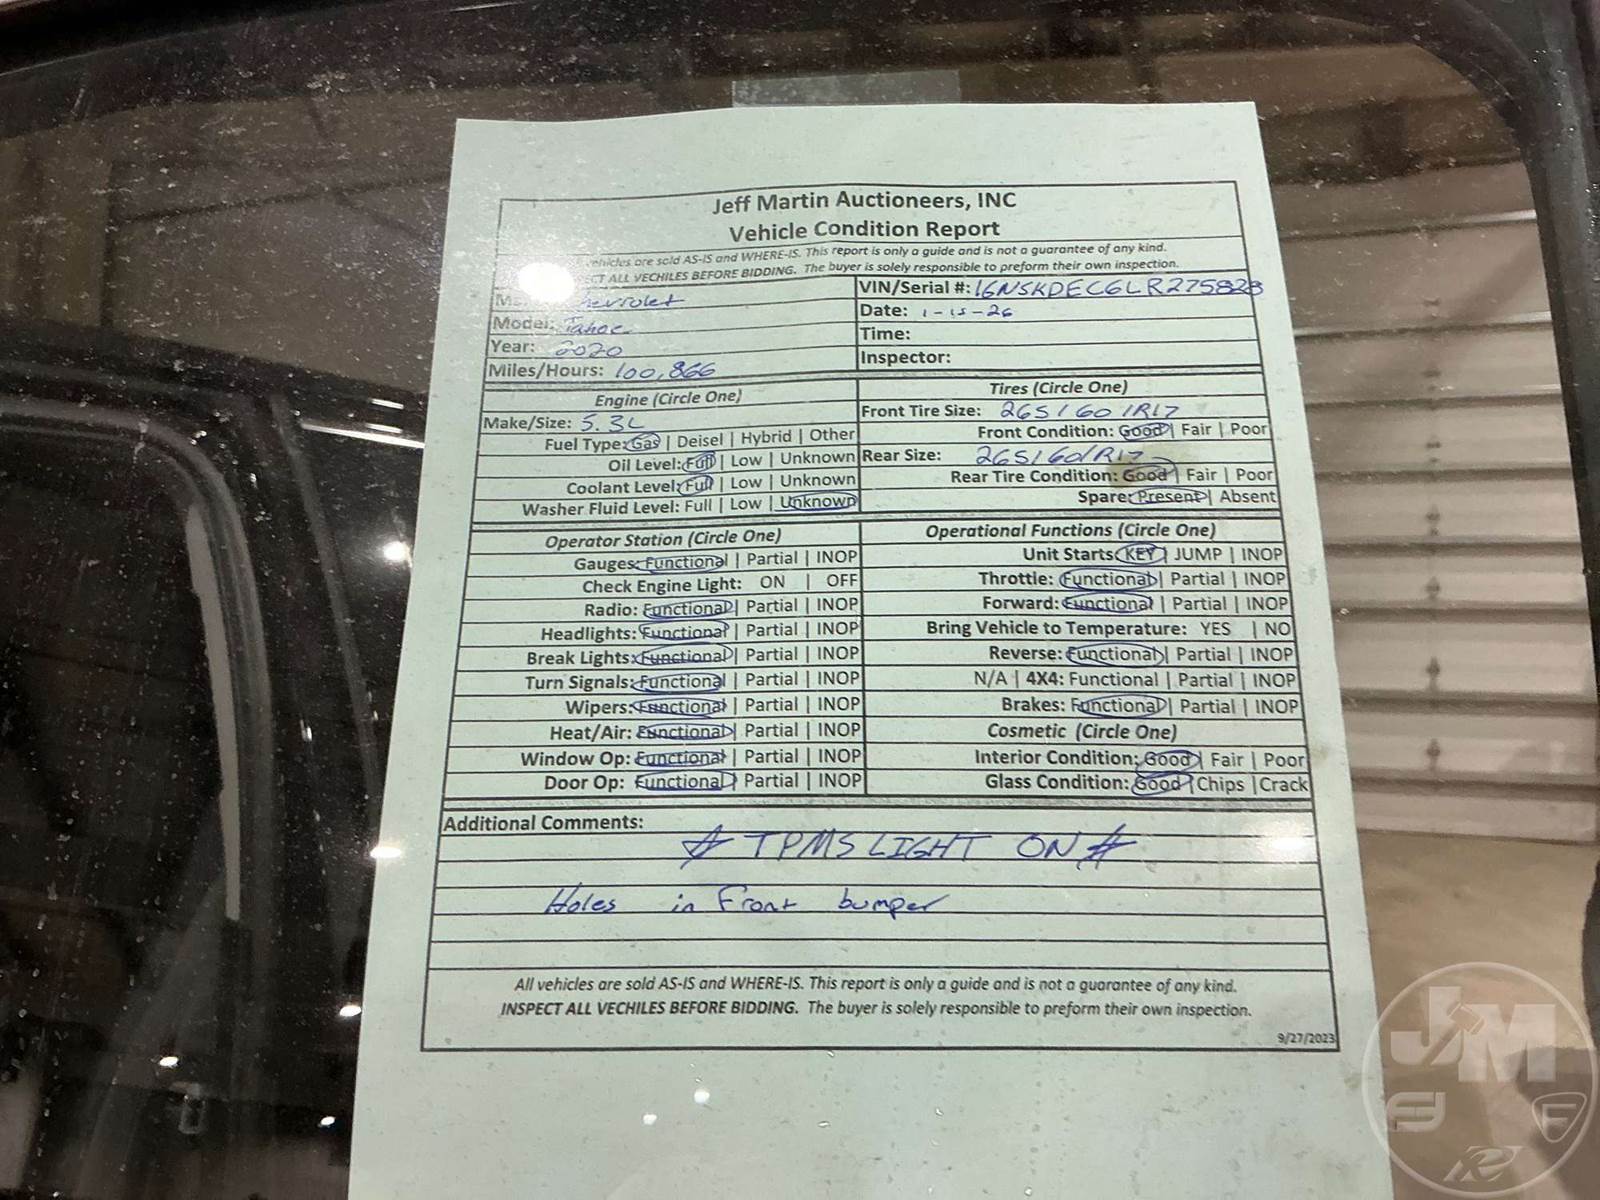 Jeff Martin Auctioneers, INC
Vehicle Condition Report
vehicles are sold AS-IS and WHERE-IS. This report is only a guide and is not a guarantee of any kind.
ALL VECHILES BEFORE BIDDING. The buyer is solely responsible to preform their own inspection.
VIN/Serial #: 1GNSKDEC6LR275828
Model: Tahoe
Date: 1-15-26
Year: 2020
Time:
Miles/Hours: 100,866
Inspector:
Engine (Circle One)
Tires (Circle One)
Make/Size: 5.3L
Front Tire Size: 265/60/R17
Fuel Type: Gas | Deisel | Hybrid | Other
Front Condition: Good | Fair | Poor
Oil Level: Full | Low | Unknown
Rear Size: 265/60/R17
Coolant Level: Full | Low | Unknown
Rear Tire Condition: Good | Fair | Poor
Washer Fluid Level: Full | Low | Unknown
Spare: Present | Absent
Operator Station (Circle One)
Operational Functions (Circle One)
Gauges: Functional | Partial | INOP
Unit Starts: KEY | JUMP | INOP
Check Engine Light: ON | OFF
Throttle: Functional | Partial | INOP
Radio: Functional | Partial | INOP
Forward: Functional | Partial | INOP
Headlights: Functional | Partial | INOP
Bring Vehicle to Temperature: YES | NO
Break Lights: Functional | Partial | INOP
Reverse: Functional | Partial | INOP
Turn Signals: Functional | Partial | INOP
N/A | 4X4: Functional | Partial | INOP
Wipers: Functional | Partial | INOP
Brakes: Functional | Partial | INOP
Heat/Air: Functional | Partial | INOP
Cosmetic (Circle One)
Window Op: Functional | Partial | INOP
Interior Condition: Good | Fair | Poor
Door Op: Functional | Partial | INOP
Glass Condition: Good | Chips | Crack
Additional Comments:
# TPMS LIGHT ON #
Holes in Front bumper
All vehicles are sold AS-IS and WHERE-IS. This report is only a guide and is not a guarantee of any kind.
INSPECT ALL VECHILES BEFORE BIDDING. The buyer is solely responsible to preform their own inspection.
9/27/2023
JM